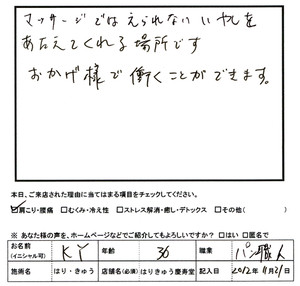 マッサージではえられないいやしを
あたえてくれる場所です
おかげ様で働くことができます。
本日、ご来店された理由に当てはまる項目をチェックしてください。
☑肩こり・腰痛 □むくみ・冷え性 □ストレス解消・癒し・デトックス □その他( )
※あなた様の声を、ホームページなどでご紹介してもよろしいですか? □はい □匿名で
お名前(イニシャル可) KY 年齢 36 職業 パン職人
施術名 はり・きゅう 店舗名(必須) はりきゅう慶寿堂 記入日 2012年11月21日